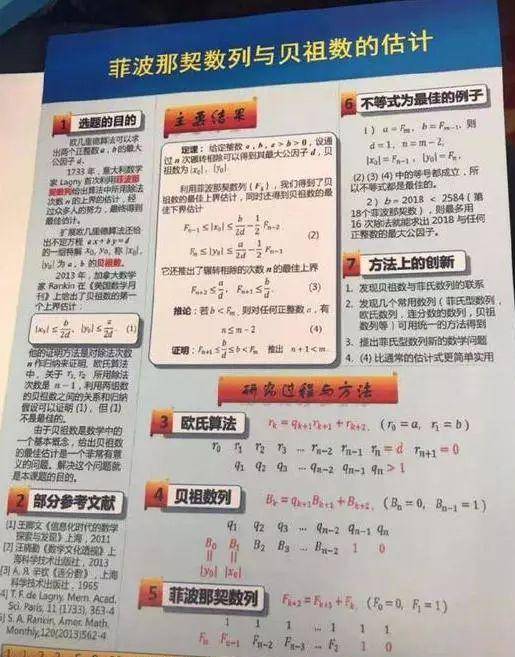 菲波那契数列与贝祖数的估计
1 选题的目的
欧几里德算法可以求
出两个正整数 a, b 的最大
公因子 d.
1733 年，意大利数学
家 Lagny 首次利用菲波那
契数列给出算法中所用除法
次数 n 的上界的估计，经
过众多人的努力，最终得到
最佳估计.
扩展欧几里德算法还给
出不定方程 ax+by=d
的一组特解 x₀, y₀, 称 |x₀|,
|y₀| 为 a, b 的贝祖数.
2013 年，加拿大数学
家 Rankin 在《美国数学月
刊》上给出了贝祖数的第一
个上界估计：
|x₀| ≤ b/2d, |y₀| ≤ a/2d. (1)
他的证明方法是对除法次数
n 作归纳来证明. 欧氏算法
中，关于 r₁, r₂ 所用除法
次数是 n − 1，利用两组数
的贝祖数之间的关系和归纳
假设可以证明 (1)，但 (1)
不是最佳的.
由于贝祖数是数学中的
一个基本概念，给出贝祖数
的最佳估计是一个非常有意
义的问题. 解决这个问题就
是本课题的目的.
2 部分参考文献
[1] 王卿文《信息化时代的数学
探索与发现》上海，2011
[2] 汪晓勤《数学文化透视》上
海科学技术出版社，2013
[3] A. Я. 辛钦《连分数》，上海
科学技术出版社，1965
4] T. F. de Lagny, Mem. Acad.
Sci. Paris, 11 (1733), 363-4
5] S. A. Rankin, Amer. Math.
Monthly, 120(2013)562-4
主要结果
定理：给定整数 a, b, a > b > 0，设通
过 n 次辗转相除可以得到其最大公因子 d，贝
祖数为 |x₀|, |y₀|.
利用菲波那契数列 {Fₖ}，我们得到了贝
祖数的最佳上界估计，同时还得到贝祖数的最
佳下界估计
Fₙ₋₁ ≤ |x₀| ≤ b/2d − 1/2 Fₙ₋₂
(2)
Fₙ ≤ |y₀| ≤ a/2d − 1/2 Fₙ₋₁
它还推出了辗转相除的次数 n 的最佳上界
Fₙ₊₂ ≤ a/d, Fₙ₊₁ ≤ b/d. (3)
推论：若 b < Fₘ，则对任何正整数 a，有
n ≤ m − 2 (4)
证明：Fₙ₊₁ ≤ b/d ≤ b < Fₘ 推出 n + 1 < m
6 不等式为最佳的例子
1) a = Fₘ, b = Fₘ₋₁, 则
d = 1, n = m − 2,
|x₀| = Fₙ₋₁, |y₀| = Fₙ,
(2) (3) (4) 中的等号都成立，所
以不等式都是最佳的.
2) b = 2018 < 2584 (第
18个菲波那契数)，则最多用
16 次除法就能求出 2018 与任何
正整数的最大公因子.
7 方法上的创新
1. 发现贝祖数与菲氏数列的联系
2. 发现几个常用数列（菲氏型数列，
欧氏数列，连分数的数列，贝祖
数列等）可用统一的方法得到
3. 提出菲氏型数列新的数学问题
4. (4) 比通常的估计式更简单实用
研究过程与方法
3 欧氏算法 rₖ = qₖ₊₁rₖ₊₁ + rₖ₊₂, (r₀ = a, r₁ = b)
r₀ r₁ r₂ r₃ ... rₙ₋₂ rₙ₋₁ rₙ = d rₙ₊₁ = 0
q₁ q₂ q₃ ... qₙ₋₂ qₙ₋₁ qₙ > 1
4 贝祖数列 Bₖ = qₖ₊₁Bₖ₊₁ + Bₖ₊₂, (Bₙ = 0, Bₙ₋₁ = 1)
q₁ q₂ q₃ ... qₙ₋₂ qₙ₋₁ qₙ
B₀ B₁ B₂ B₃ ... Bₙ₋₂ 1 0
|| ||
|y₀| |x₀|
5 菲波那契数列 Fₖ₊₂ = Fₖ₊₁ + Fₖ, (F₀ = 0, F₁ = 1)
1 1 1 ... 1 1 1
Fₙ Fₙ₋₁ Fₙ₋₂ Fₙ₋₃ ... F₂ 1 0